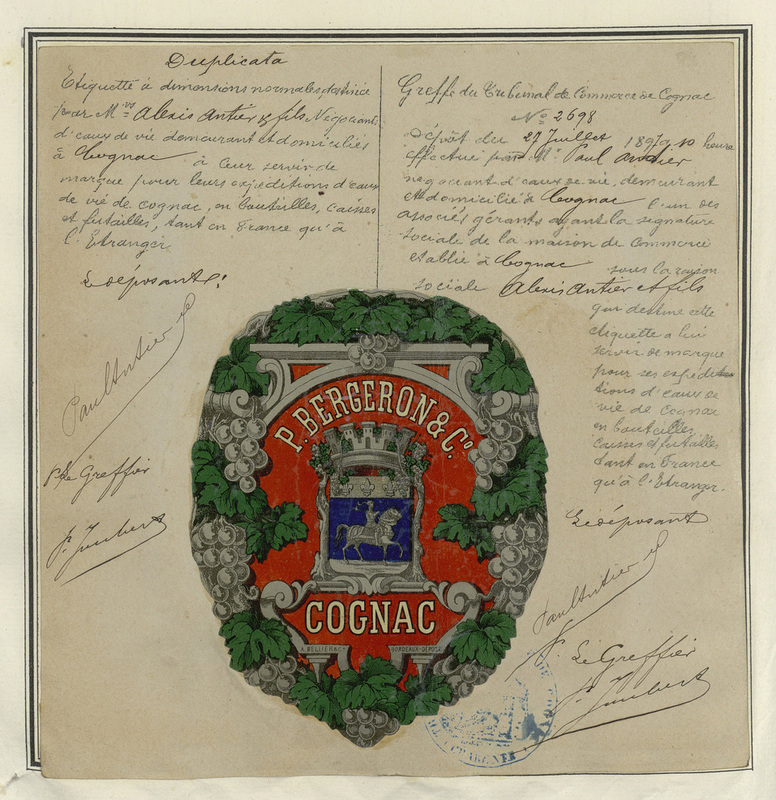 Duplicata
Etiquette à dimensions normales, destinée
par MM. rs Alexis Antier & fils Négociants
d'eaux de vie demeurant et domiciliés
à Cognac à leur servir de
marque pour leurs expéditions d'eaux
de vie de cognac, en bouteilles, caisses
et futailles, tant en France qu'à
l'Etranger.
Le déposant:
Paul Antier
Le Greffier
P. Joubert
Greffe du Tribunal de Commerce de Cognac
N° 2698
Dépôt du 27 Juillet 1897, 10 heure
effectué par M. Paul Antier
négociant d'eaux de vie, demeurant
et domicilié à Cognac l'un des
associés gérants ayant la signature
sociale de la maison de commerce
établie à Cognac sous la raison
sociale Alexis Antier et fils
qui destine cette
etiquette a lui
servir de marque
pour ses expédi-
tions d'eaux de
vie de Cognac
en bouteilles,
caisses et futailles
tant en France
qu'à l'Etranger.
Le déposant
Paul Antier
Le Greffier
P. Joubert
P. BERGERON & Co.
COGNAC
BORDEAUX-DÉPOSÉ